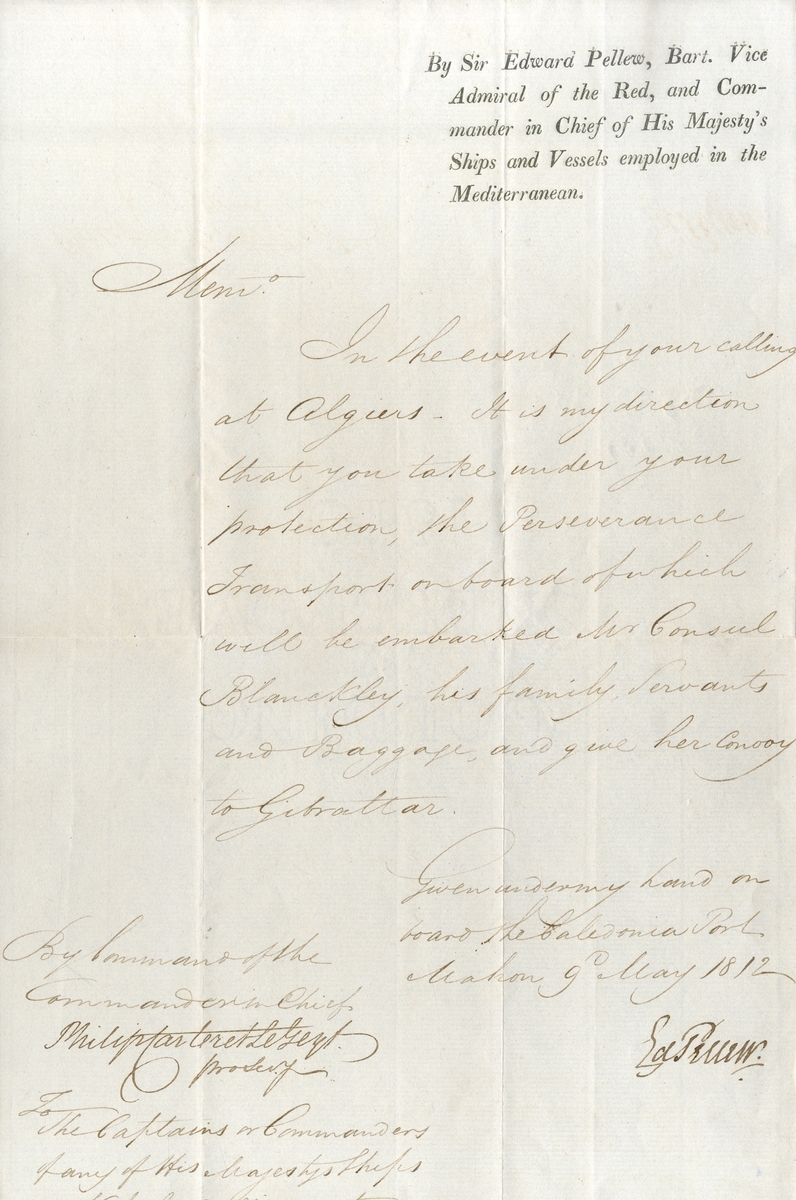 By Sir Edward Pellew, Bart. Vice
Admiral of the Red, and Com-
mander in Chief of His Majesty's
Ships and Vessels employed in the
Mediterranean.
Memo.
In the event of your calling
at Algiers - It is my direction
that you take under your
protection, the Perseverance
Transport on board of which
will be embarked Mr Consul
Blanckley, his family, Servants
and Baggage, and give her Convoy
to Gibraltar.
Given under my hand on
board the Caledonia Port
Mahon 9 May 1812
Ed Pellew.
By Command of the
Commander in Chief
Philip Carteret Le Geyt.
pro Secy
To
The Captains or Commanders
of any of His Majestys Ships